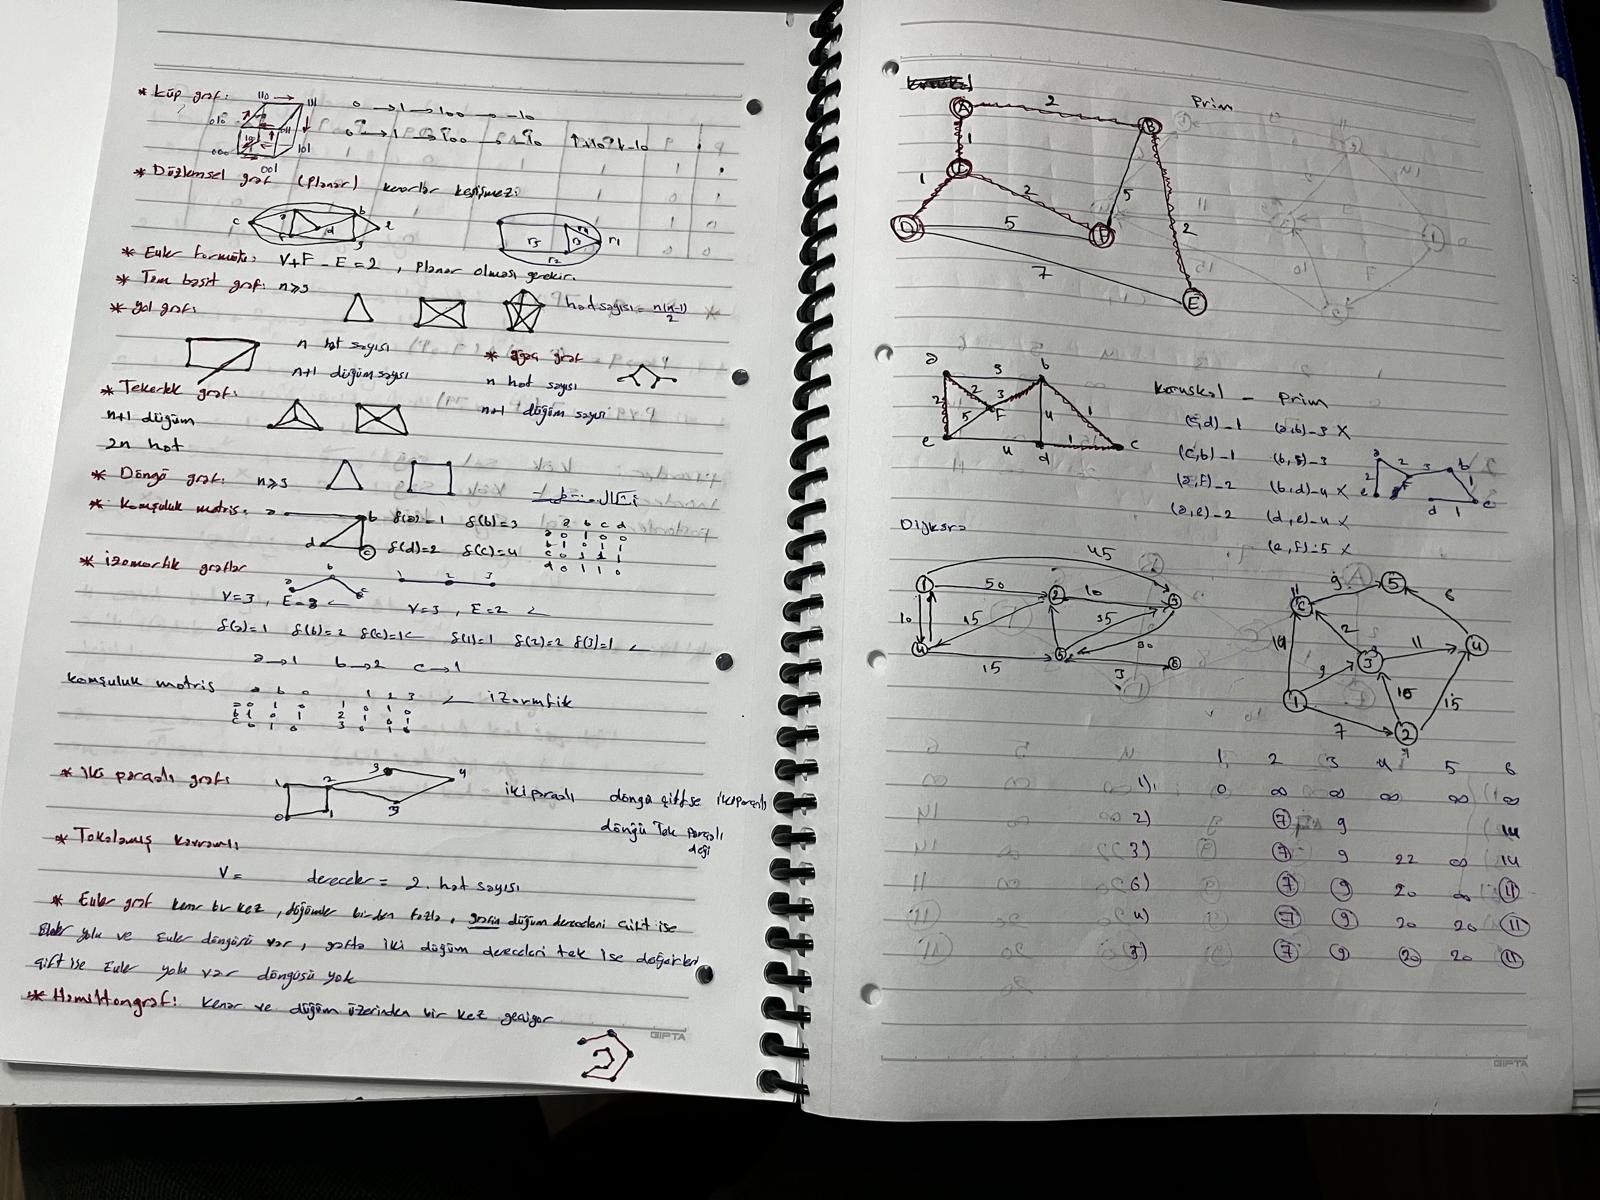 * Küp graf:
110 → 111
010 011
000 101
001
0 → 1 → 100 → -10
* Düzlemsel graf (planar) kenarlar kesişmez:
c a b d e
r3 r1
r2
* Euler formülü: V+F-E=2 , planar olması gerekir.
* Tam basit graf: n≥3
hat sayısı = n(n-1)/2
* Yol graf:
n hat sayısı
n+1 düğüm sayısı
* ağaç graf
n hat sayısı
n+1 düğüm sayısı
* Tekerlek graf:
n+1 düğüm
2n hat
* Döngü graf: n≥3
* Komşuluk matris: a b
d c
δ(a)=1 δ(b)=3
δ(d)=2 δ(c)=4
a b c d
a 0 1 0 0
b 1 0 1 1
c 0 1 1 1
d 0 1 1 0
* izomorfik graflar
a b c 1 2 3
V=3 , E=2 V=3 , E=2
δ(a)=1 δ(b)=2 δ(c)=1 δ(1)=1 δ(2)=2 δ(3)=1
a→1 b→2 c→1
komşuluk matris
1 2 3
1 0 1 0
2 1 0 1
3 0 1 0
izormfik
* iki parçalı graf:
1 2 3 4
0 1 5
iki parçalı döngü çiftse iki parçalı
döngü Tek parçalı
değil
* Tokalaşmış kavramı
V= dereceler = 2. hat sayısı
* Euler graf kenar bir kez , düğümler birden fazla , grafın düğüm dereceleri çift ise
Euler yolu ve Euler döngüsü var , grafta iki düğüm dereceleri tek ise diğerleri
çift ise Euler yolu var döngüsü yok
* Hamilton graf: kenar ve düğüm üzerinden bir kez geçiyor
GIPTA
Prim
A 2 B
1
1 2 5 2
D 5 F
7
E
a 3 b
2 2 3 4 1
5 F
e 4 d 1 c
Kruskal - Prim
(c,d)-1 (a,b)-3 X
(c,b)-1 (b,f)-3
(a,F)-2 (b,d)-4 X
(a,e)-2 (d,e)-4 X
(e,f)-5 X
a 2 3 b
2 1
e d 1 c
Dijksra
45
1 50 2 10 3
10 15 35
30
4 15 5 3 6
6 9 5
14 2 6
3 11 4
1 9 10
7 2 15
1 2 3 4 5 6
1) 0 ∞ ∞ ∞ ∞ ∞
2) 7 9 14
3) 7 9 22 ∞ 14
6) 7 9 20 ∞ 11
4) 7 9 20 20 11
3) 7 9 20 20 11
GIPTA